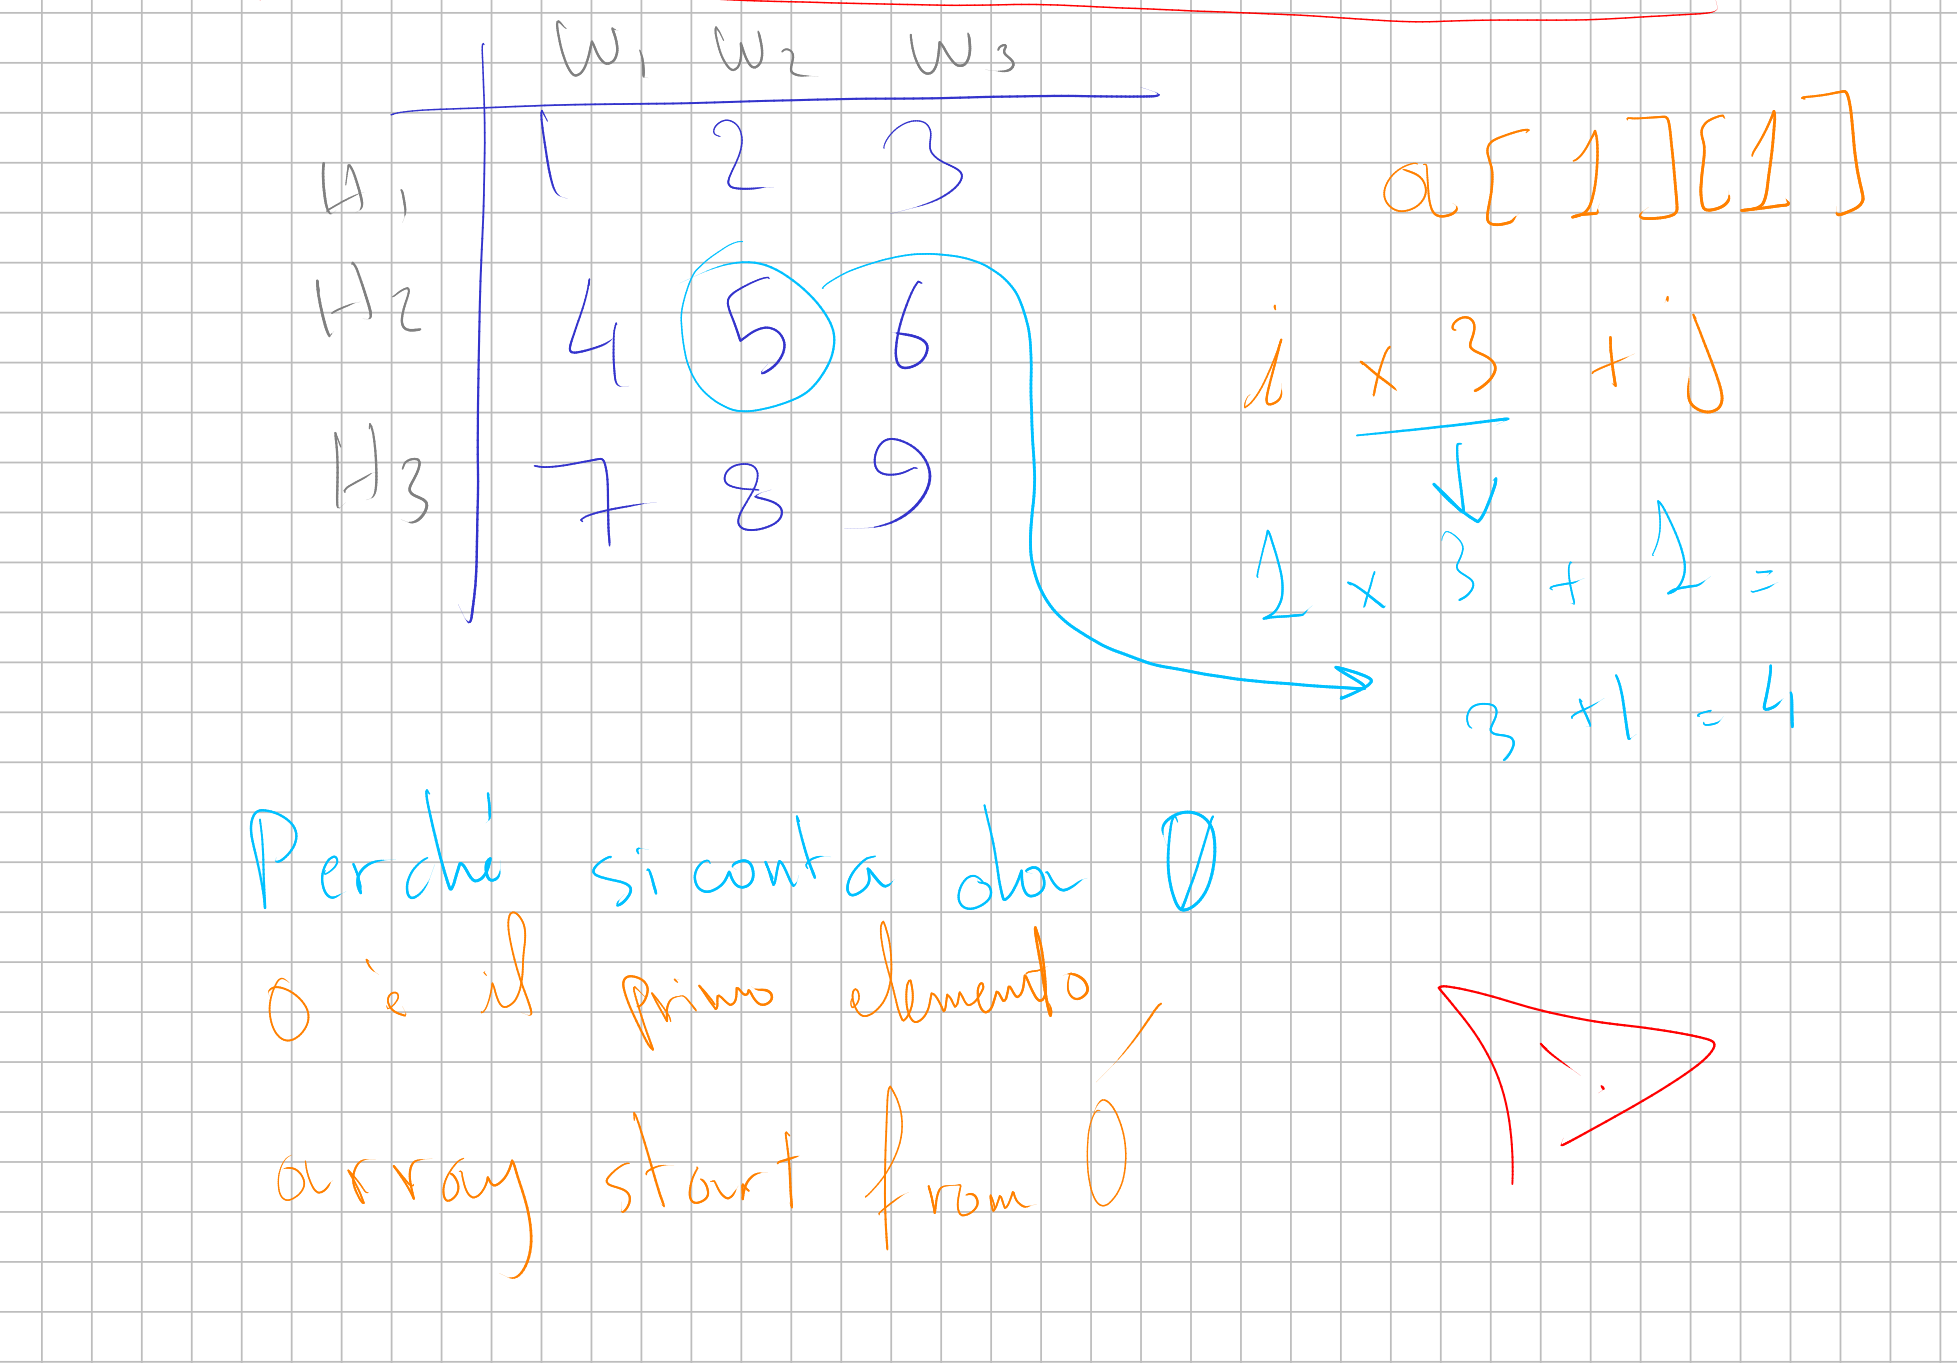 W1 W2 W3
H1 1 2 3
H2 4 5 6
H3 7 8 9
a[1][1]
i x 3 + j
1 x 3 + 1 =
3 + 1 = 4
Perché si conta da 0
0 è il primo elemento
array start from 0